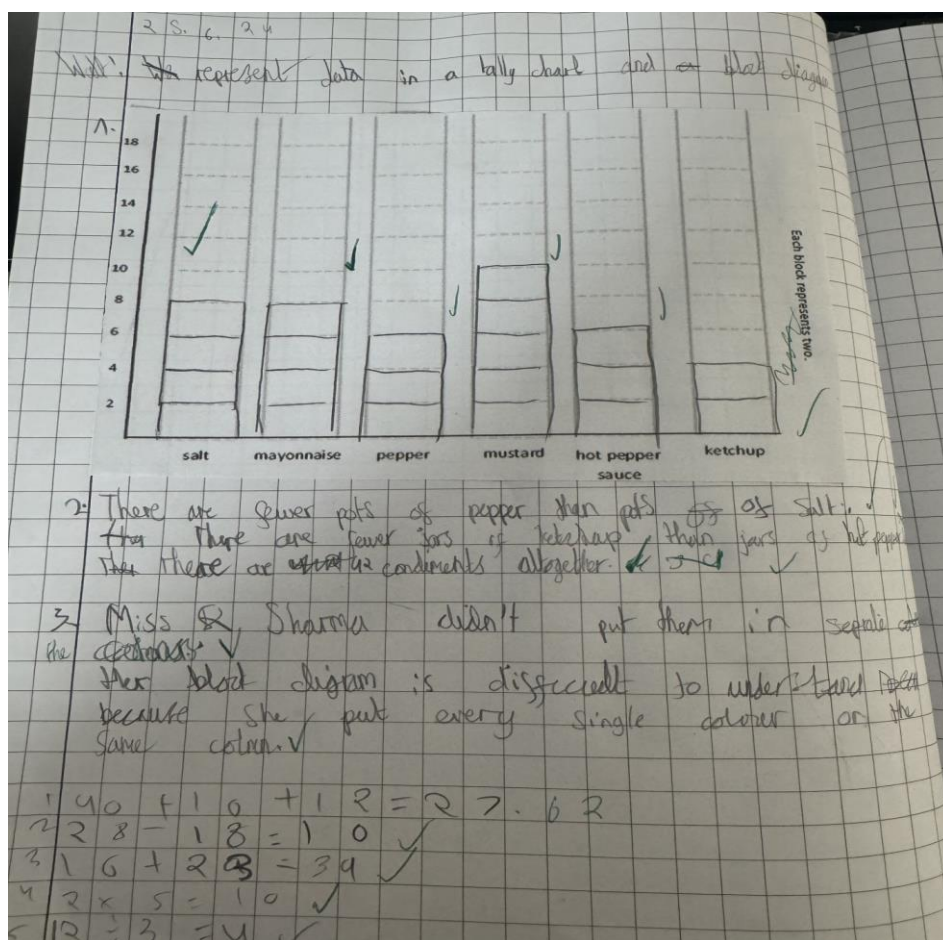 25.6.24
Walt: represent data in a tally chart and block diagram
1.
18
16
14
12
10
8
6
4
2
salt mayonnaise pepper mustard hot pepper sauce ketchup
Each block represents two.
2. There are fewer pots of pepper than pots of salt.
There are fewer jars of ketchup than jars of hot pepper
There are 42 condiments altogether.
3. Miss Sharma didn't put them in
the
block digram is difficult to understand
because she put every single on the
same
1 40 + 10 + 12 = 62
2 28 - 18 = 10
3 16 + 23 = 39
4 2 x 5 = 10
5 12 ÷ 3 = 4